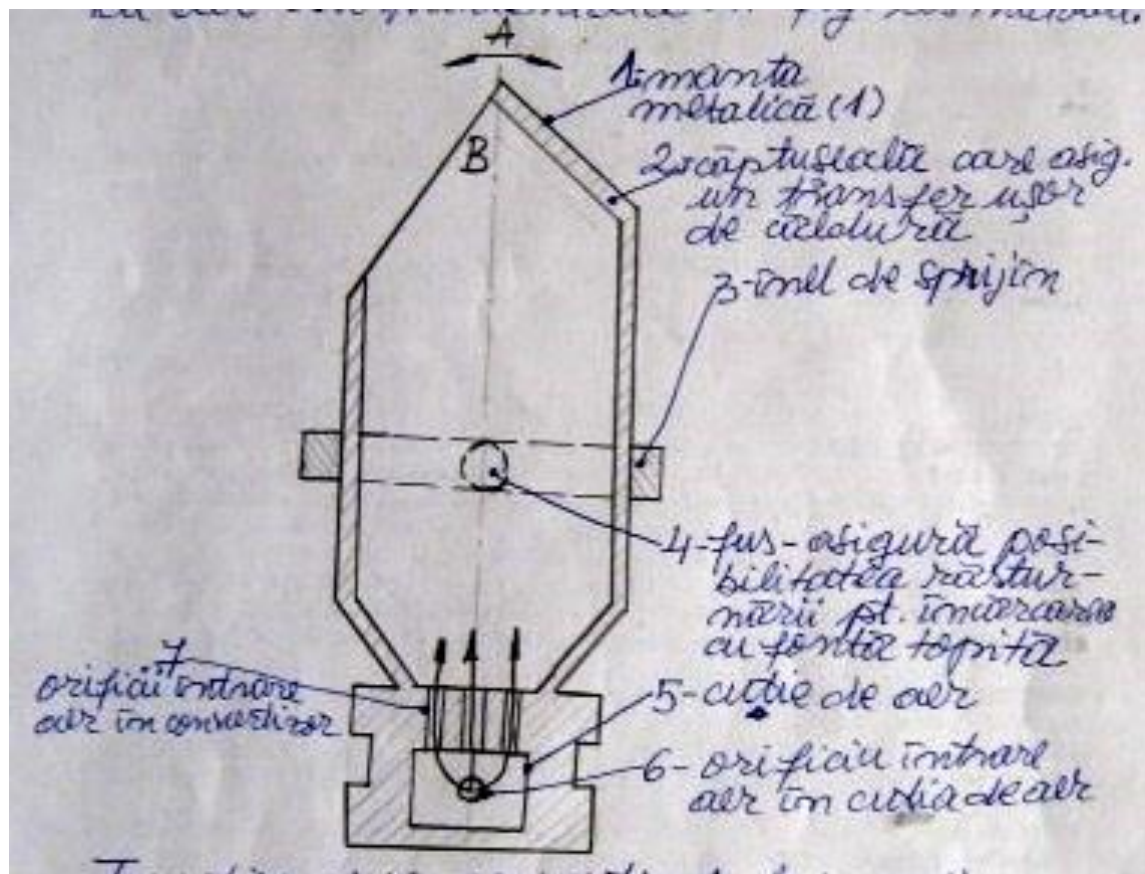 A
1-manta
metalică (1)
B
2-căptuseală care asig.
un transfer ușor
de căldură
3-inel de sprijin
4-fus-asigură posi-
bilitatea răstur-
nării pt. încărcarea
cu fontă topită
7
orificii intrare
aer în convertizor
5-cutie de aer
6-orificiu intrare
aer în cutia de aer